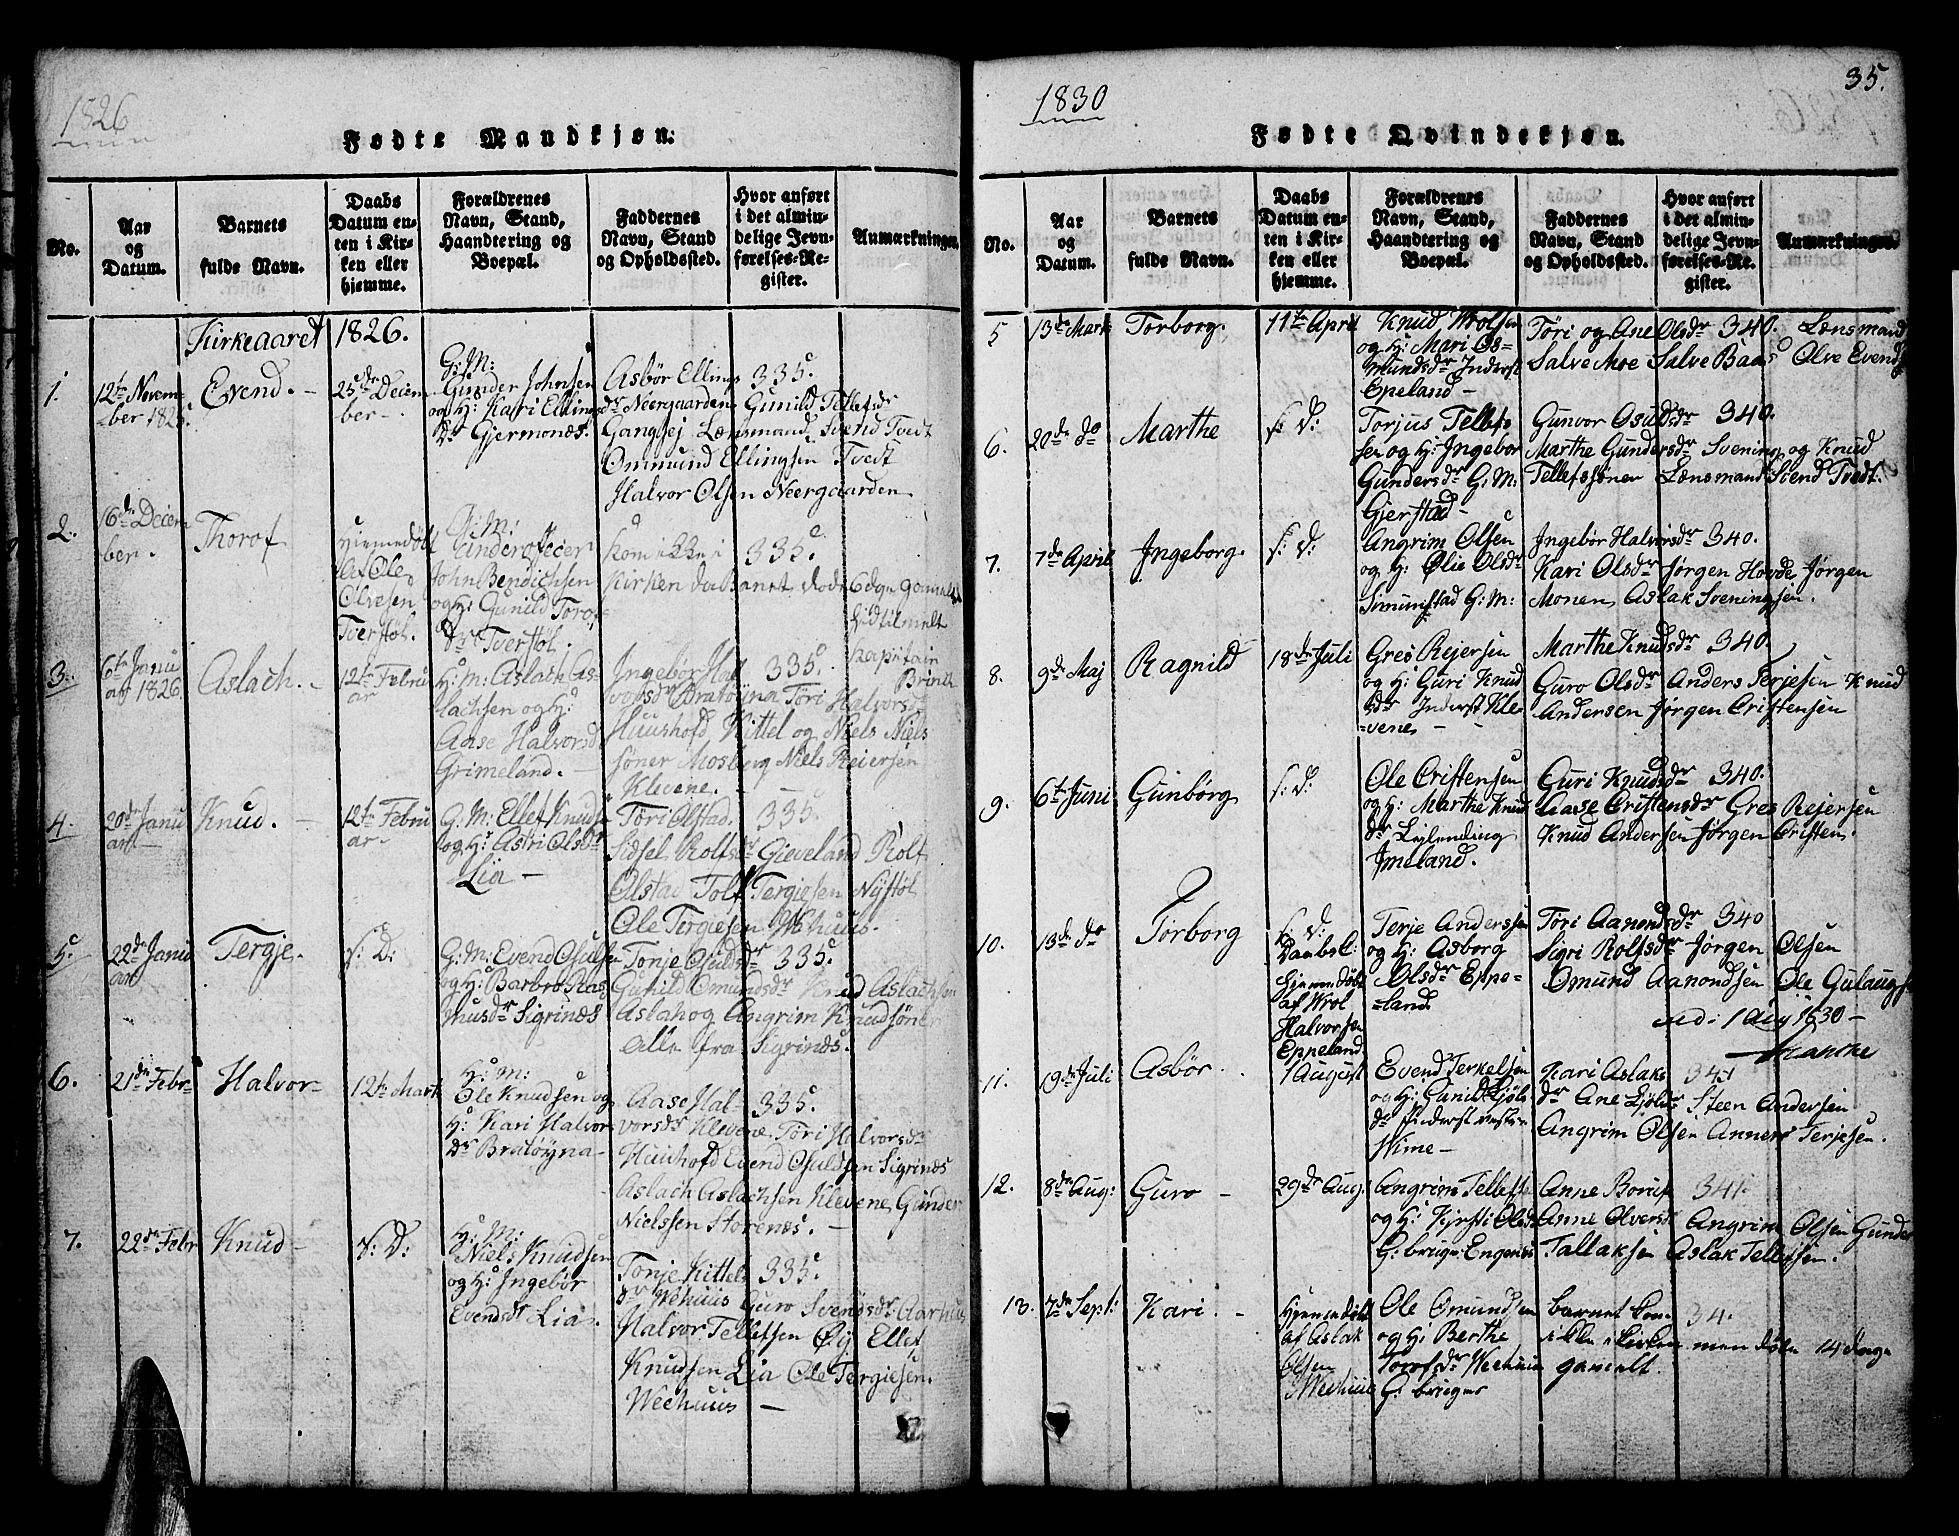 1826
Fødte Mandkjøn.
No.
Aar
og
Datum.
Barnets
fulde Navn.
Daabs
Datum en-
ten i Kir-
ken eller
hjemme.
Forældrenes
Navn, Stand,
Haandtering og
Boepæl.
Faddernes
Navn, Stand
og Opholdssted.
Hvor anført
i det almin-
delige Jevn-
førelses-Re-
gister.
Anmærkninger.
Kirkeaaret 1826.
1.
12te Novem-
ber 1825.
Evend. -
25de Decem
ber -
G: M:
Gunder Johnsen
og H: Kari Ellings
Dr Gjermonæs.
Asbør Ellings 335.
dr Neergaarden Gunild Tellefsdr
Gangsej Lænsmand Svend Tvedt
Ommund Ellingsen Tvedt
Halvor Olsen Neergaarden
2.
16de Decem
ber.
Thorof
Hiemedøbt
af Ole
Olvesen
Tverstøl.
G: M:
Underofficer
John Bendichsen
og H: Gunild Torof
dr Tverstøl.
Kom ikke i 335.
Kirken da Barnet døde 6 dage gammelt
3.
6te Janu
ar 1826
Aslach. -
12te Febru
ar
H: M: Aslach As-
lachsen og H:
Aase Halvorsdr
Grimeland. -
Ingebør Hal 335.
vorsdr Bratøyna Tøri Halvorsdr
Huushofd Kittel og Niels Niels
søner Mosberg Niels Reiersen
Klevene. -
4.
20de Janu
ar -
Knud. -
12te Febru
ar -
G. M. Ellef Knuds
og H: Astri Olsdr
Lia -
Tøri Olstad. 335.
Sidsel Rolfsdr Gieveland Rolf
Olstad Tolf Tergiesen Nystøl
Ole Tergiesen Wehuus.
5.
22de Janu
ar
Tergje.
s: D:
G: M: Evend Osulfsen
og H: Barbro Ras
musdr Sigrinæs
Tonje Osuldsdr 335.
Gunild Omundsdr Knud Aslachsen
Aslak og Angrim Knudsøner
Alle fra Sigrinæs.
6.
21de Febr
Halvor -
12te Marts
H: M:
Ole Knudsen og
H: Kari Halvor
dr Bratøyna -
Aase Hal- 335.
vorsdr Klevene, Tøri Halvorsdr
Huushofd Evend Osuldsen Sigrinæs
Aslach Aslachsen Klevene, Gunder
Nielssen Storenæs. -
7.
22de Febr
Knud -
s: D:
H: M:
Niels Knudsen
og H: Ingebør
Evendsdr Lia.
Tonje Kittels 335.
dr Wehuus Guro Svendsdr Aarhuus
Halvor Tellefsen Øy Ellef
Knudsen Lia Ole Tergiesen
Wechuus -
1830
35.
Fødte Qvindekjøn.
No.
Aar
og
Datum.
Barnets
fulde Navn.
Daabs
Datum en-
ten i Kir-
ken eller
hjemme.
Forældrenes
Navn, Stand,
Haandtering og
Boepæl.
Faddernes
Navn, Stand
og Opholdssted.
Hvor anført
i det almin-
delige Jevn-
førelses-Re-
gister.
Anmærkninger.
5
13de Marts
Torborg.
11te April
Knud Wrolsen
og H: Mari Os-
mundsdr Inderst
Epeland -
Tøri og Ane Olsdr 340. Lænsmand
Salve Moe Salve Baas Olve Evends
6.
20de do
Marthe
s: D:
Torjus Tellefs
sen og H: Ingebor
Gundersdr G: M:
Gjerstad -
Gunvor Osulsdr 340.
Marthe Gundersdr Svening og Knud
Tellefssøner Lænsmand Svend Tvedt.
7.
7de April
Ingeborg.
s: D:
Angrim Olsen
og H: Olie Olsdr
Simunstad G: M:
Ingebør Halvorsdr 340.
Kari Olsdr Jørgen Hovde Jørgen
Monen Aslak Sveningsen.
8.
9de Maj
Ragnild
18de Juli
Gres Rejersen
og H: Guri Knud
sdr Inderst Kle
-vene -
Marthe Knudsdr 340.
Guro Olsdr Anders Terjesen Knud
Andersen Jørgen Cristensen
9.
6te Juni
Gunborg
s: D:
Ole Cristensen
og H: Marthe Knud
dr Lejlending
Imeland.
Guri Knudsdr 340.
Aase Cristensdr Gres Rejersen
Knud Andersen Jørgen Cristen.
10.
13de do
Torborg
s: D:
Hjemmedøbt
af Wrol
Halvorsen
Eppeland
Terje Anderssen
og H: Asborg
Olsdr Eppe-
-land.
Tøri Aanondsdr 340
Sigri Rolfsdr Jørgen Olsen
Omund Aanondsen Ole Gulaugs
1 Aug 1830 -
11.
19de Juli
Asbør.
1 August
Evend Terkelsen
og H: Gunild Ljøls
dr Inderst
Wime -
Kari Aslaks 341
dr Ane Ljølsdr Steen Andersen
Angrim Olsen Anners Terjesen.
12.
8de Aug:
Guro -
29de Aug.
Angrim Tellefs
og H: Kjersti Olvers
G: bruger Engenes
Anne Boruf 341.
Anni Olversdr Angrim Olsen Gunder
Tallaksen Aslak Tellefsen.
13.
7de Sept:
Kari. -
Hjemmedøbt
af Aslak
Olsen
Wechuus
Ole Omundsen
og H: Berthe
Torofsdr Wechuus
G: bruger
barnet kom 34.
ikke i kirken men døde 14 dage
gamelt.